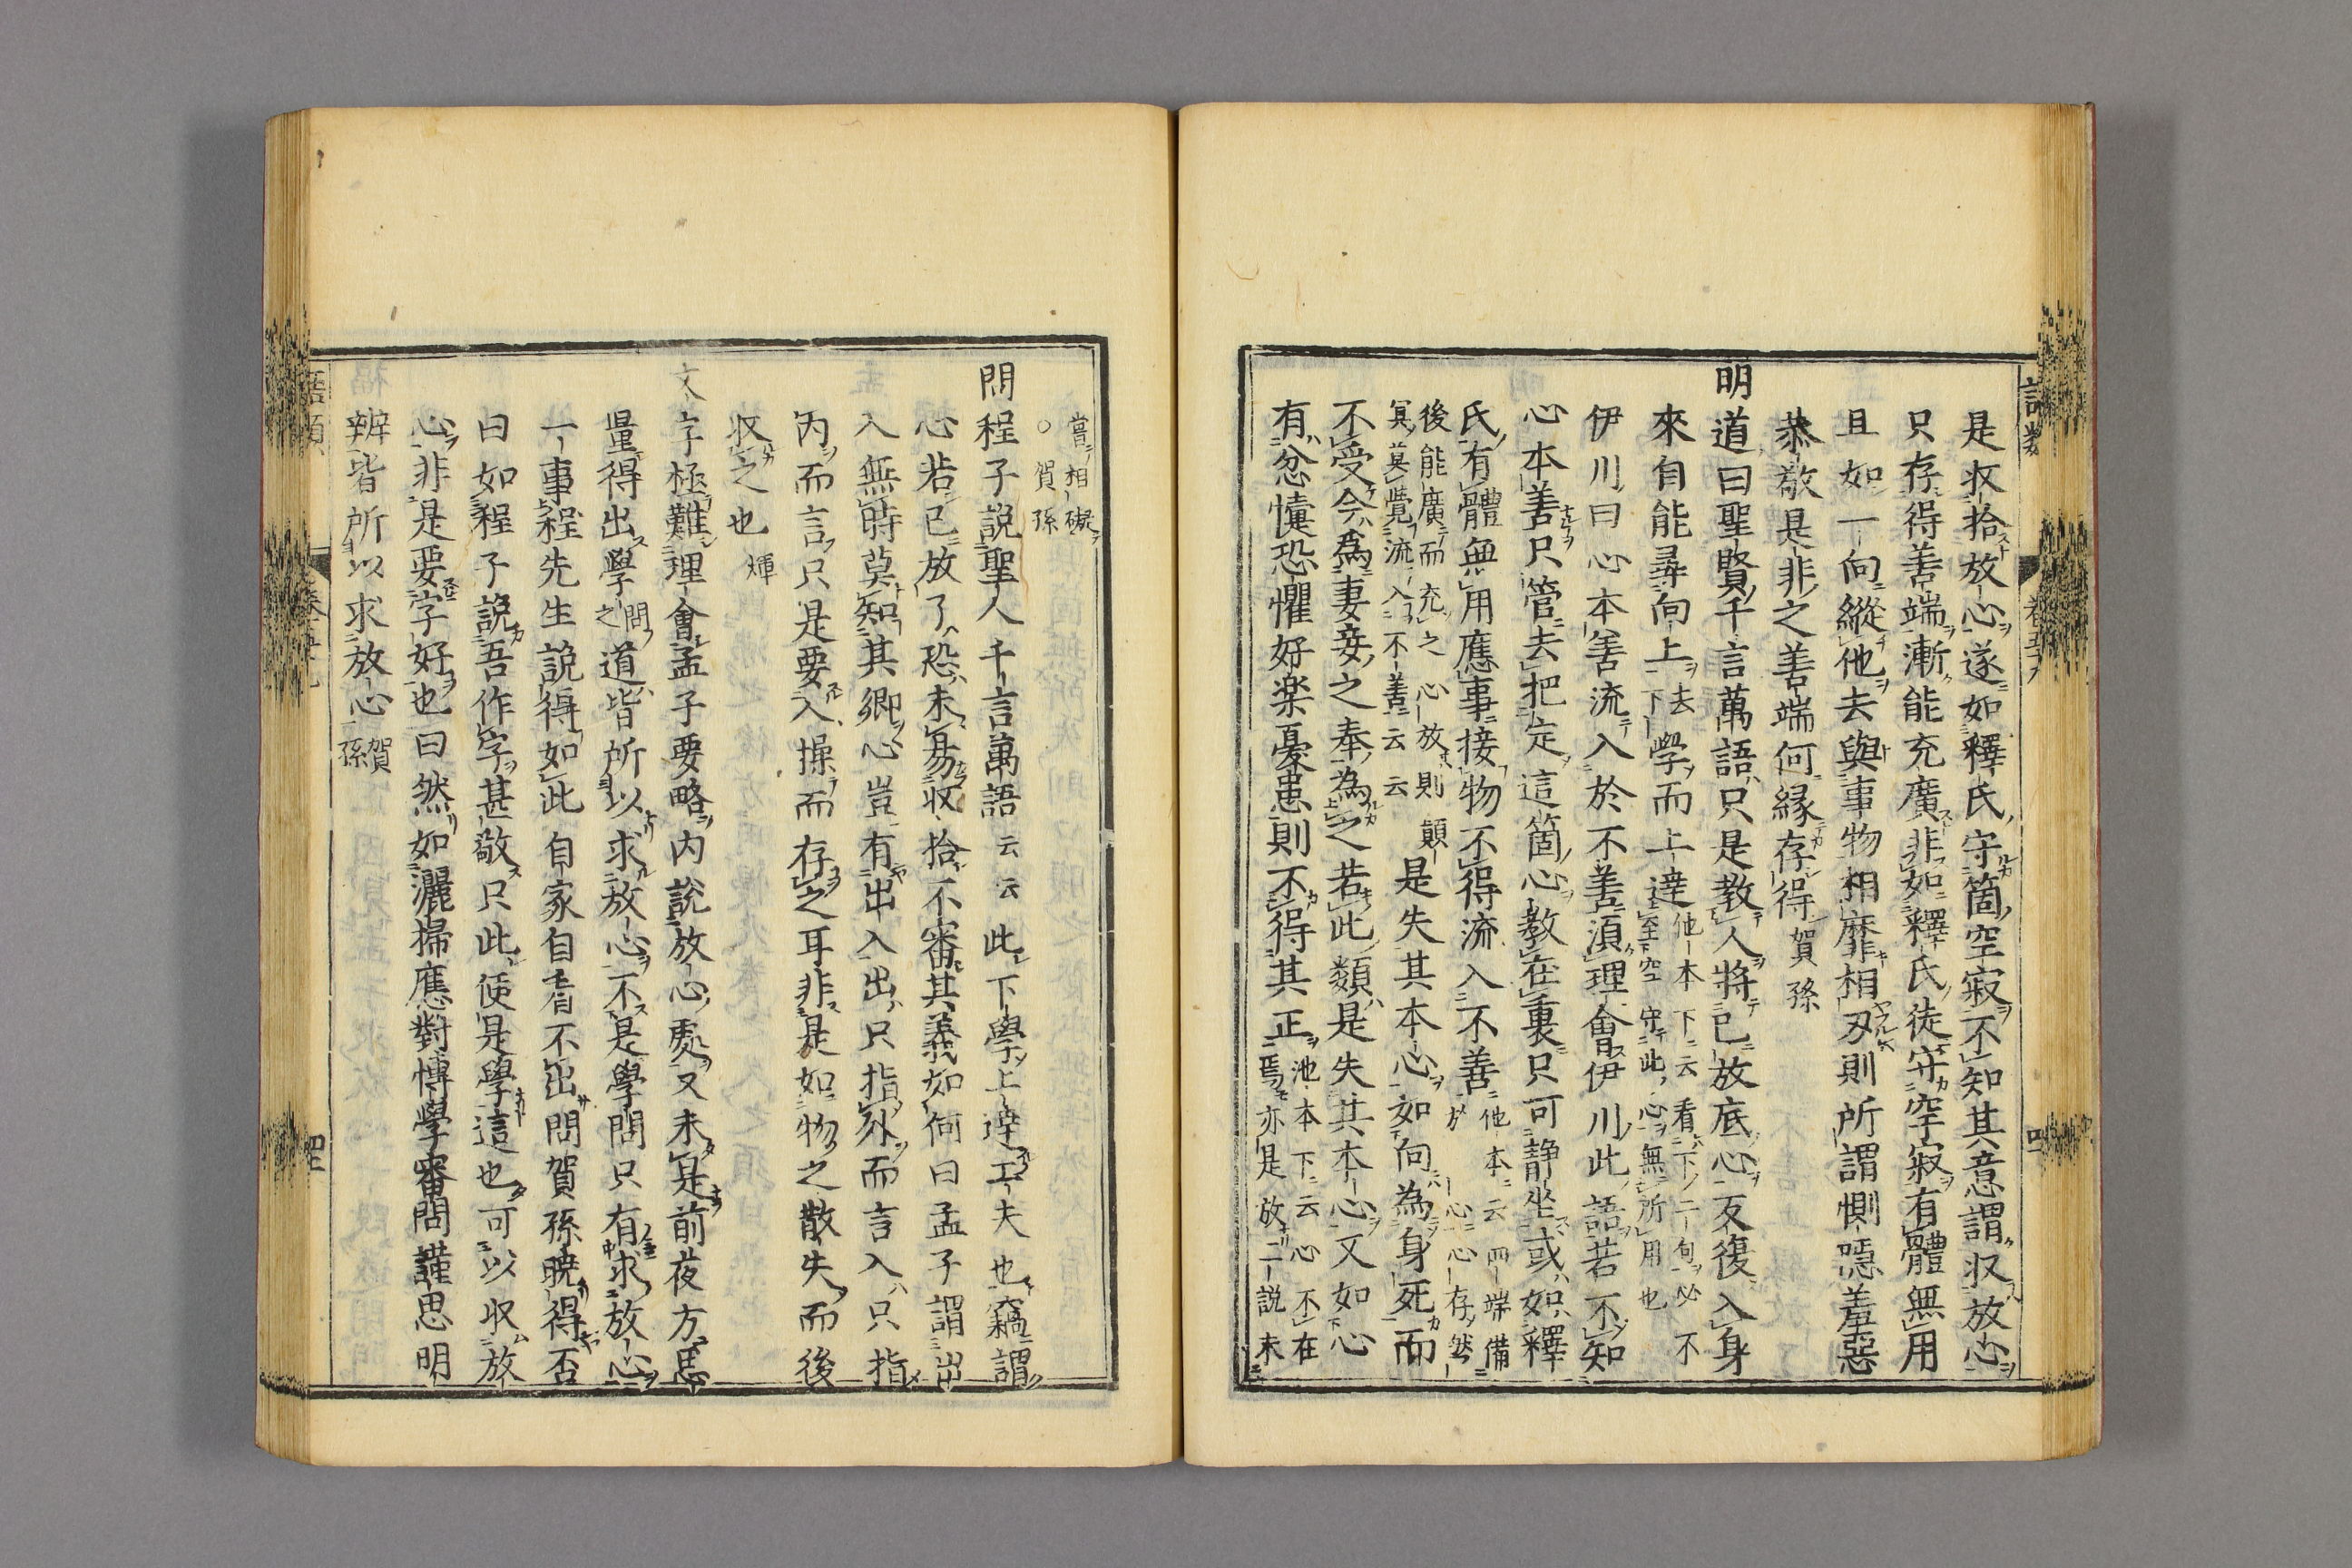 是収拾放心遂如釋氏守箇空寂不知其意謂収放心
只存得善端漸能充廣非如釋氏徒守空寂有體無用
且如一向縱他去與事物相靡相刃則所謂惻隠羞惡
恭敬是非之善端何縁存得賀孫
明道曰聖賢千言萬語只是教人將已放底心反復入身
來自能尋向上去下學而上達他本下云看下二句必不至空守此心無所用也
伊川曰心本善流入於不善湏理會伊川此語若不知
心本善只管去把定這箇心教在裏只可静坐或如釋
氏有體無用應事接物不得流入不善他本云四端備於一心一心存然
後能廣而充之心放則顛
冥莫覺流入不善云云
是失其本心如向為身死而
不受今為妻妾之奉為之若此類是失其本心又如心
有忿懥恐懼好楽憂患則不得其正池本下云心不在焉亦是放二説未
嘗相礙
○賀孫
問程子説聖人千言萬語云云此下學上達工夫也竊謂
心若已放了恐未易収拾不審其義如何曰孟子謂出
入無時莫知其郷心豈有出入出只指外而言入只指
内而言只是要入操而存之耳非是如物之散失而後
収之也煇
文字極難理會孟子要略内説放心處又未是前夜方思
量得出學問之道皆所以求放心不是學問只有求放心
一事程先生説得如此自家自看不出問賀孫曉得否
曰如程子説吾作字甚敬只此便是學這也可以収放
心非是要字好也曰然如灑掃應對博學審問謹思明
辨皆所以求放心賀孫